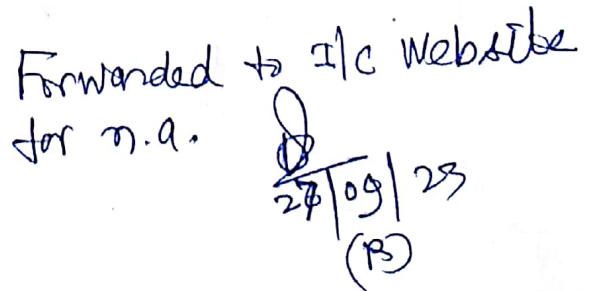 Forwarded to I/c Website
for n.a.
27/09/23
(B)